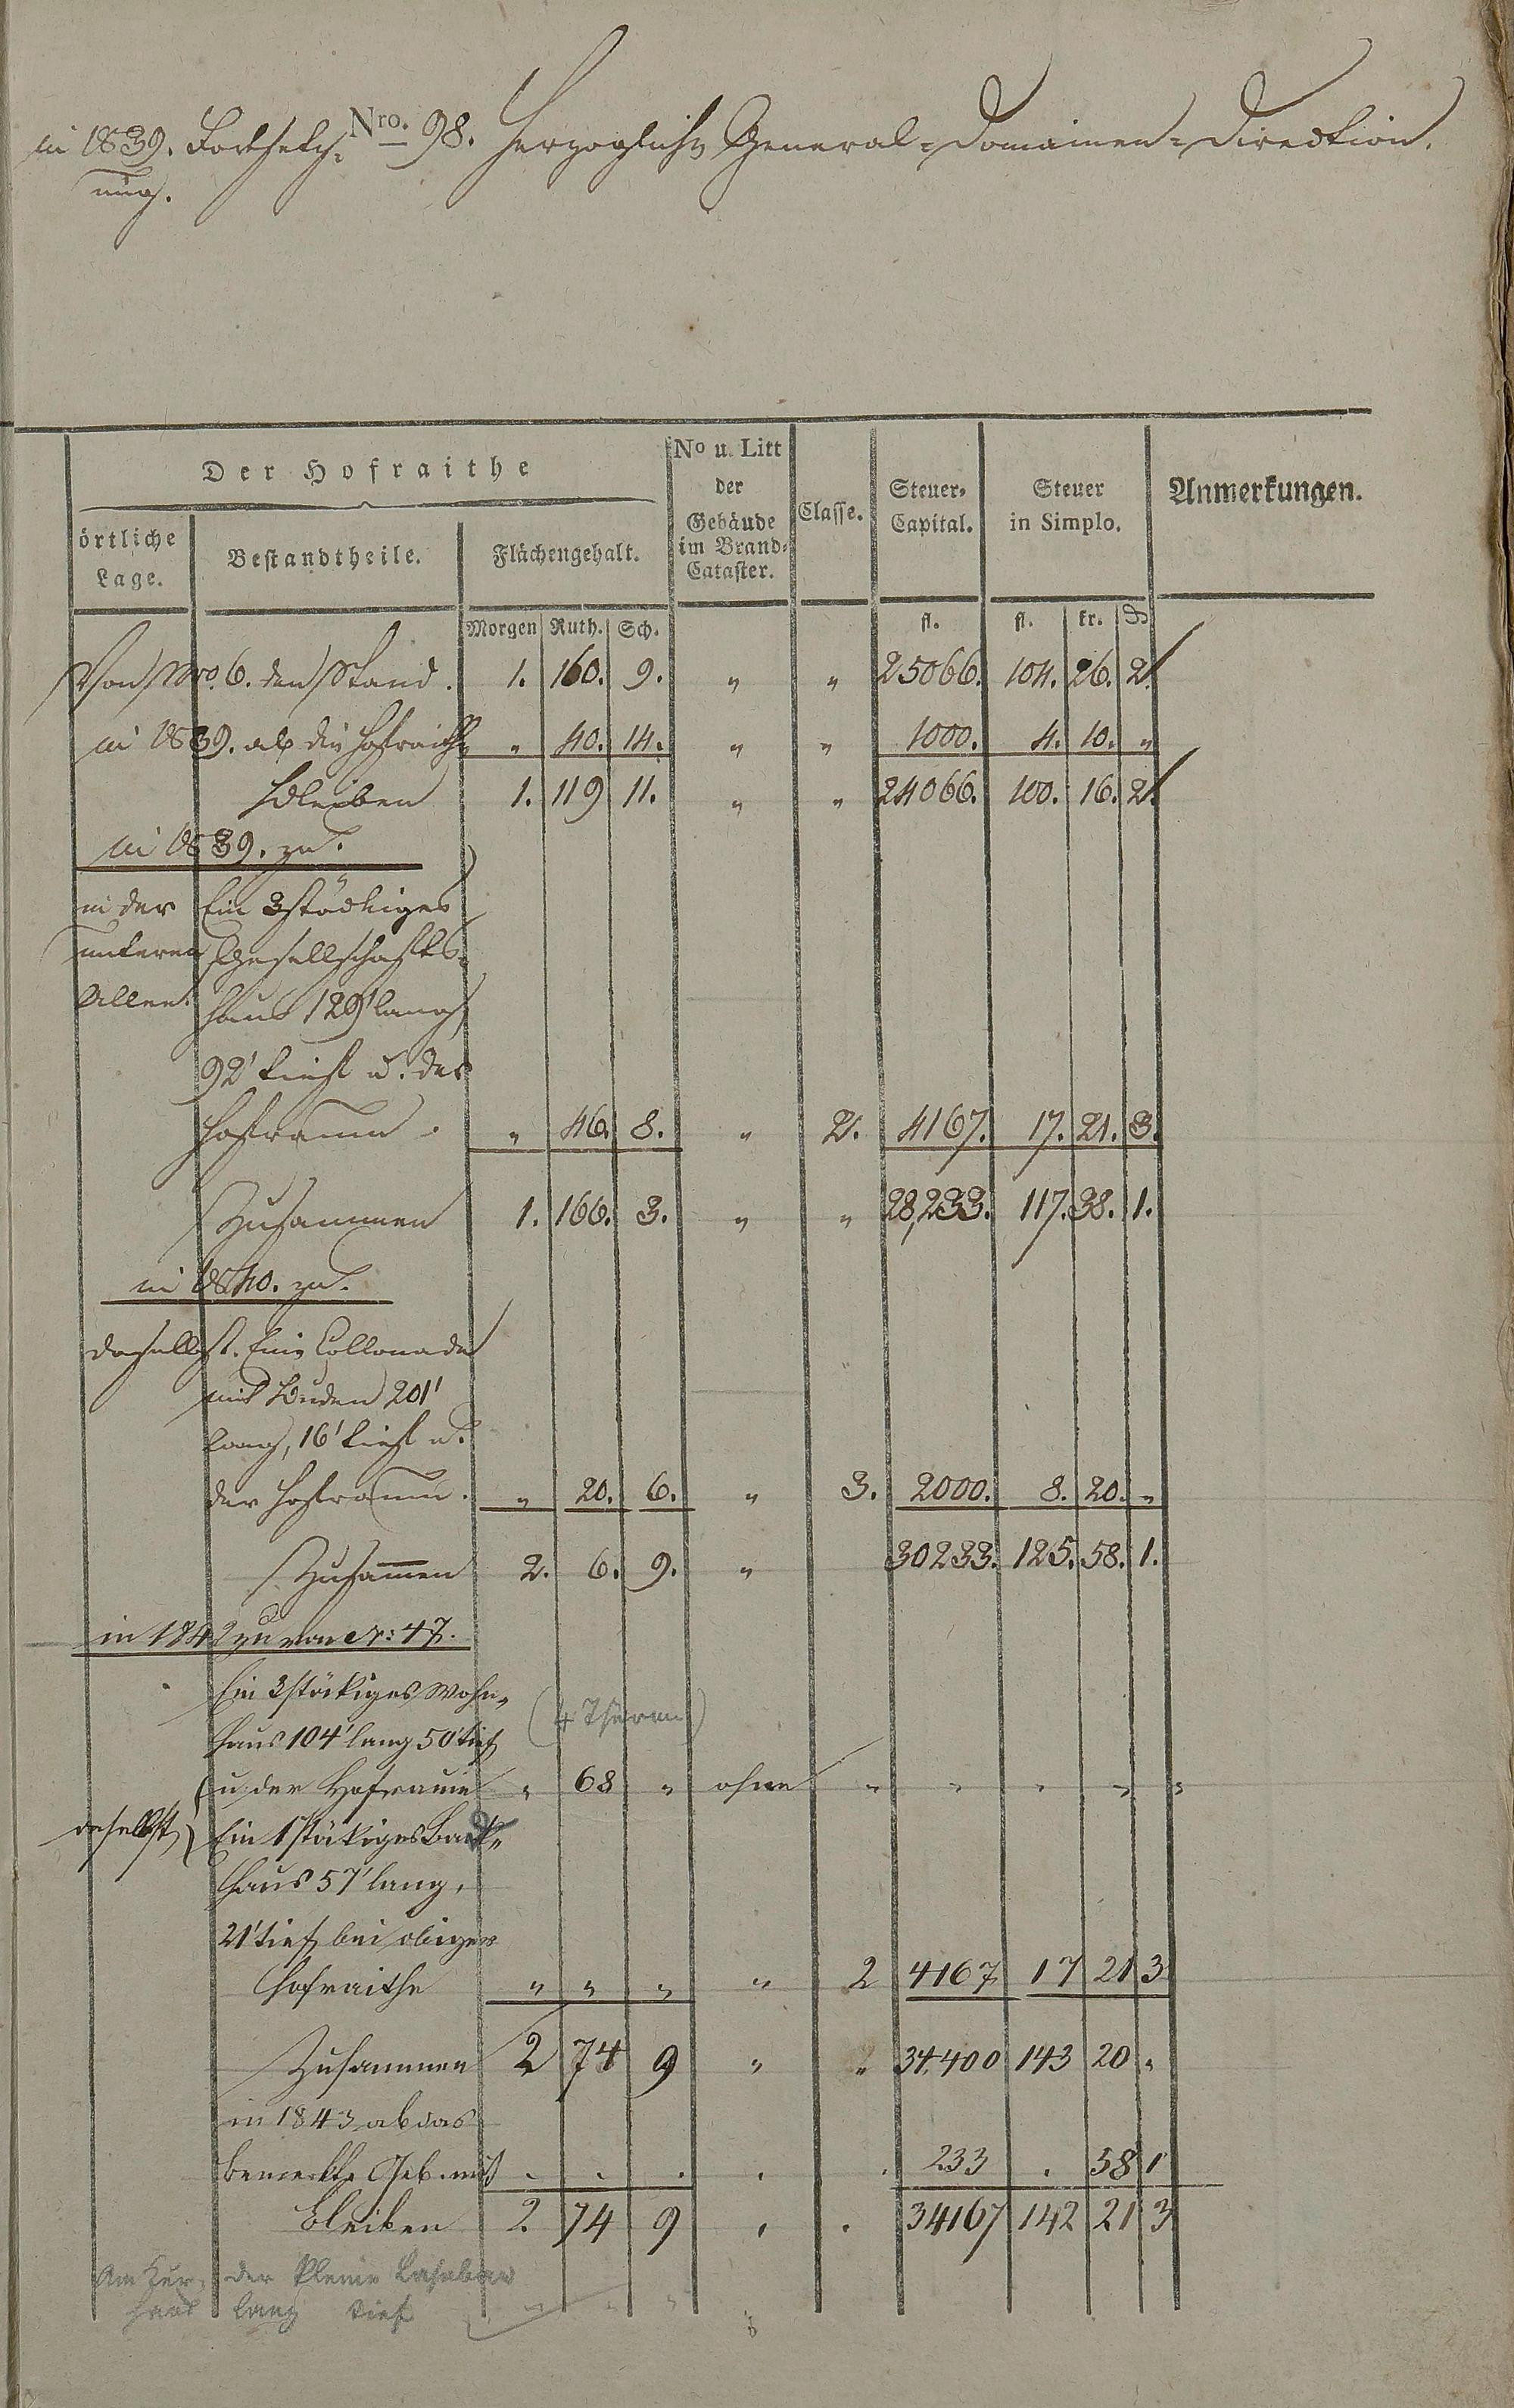 in 1839. Fortsetz- Nro. 98. Herzogliche General-Domainen-Direction.
ung.
Der Hofraithe
örtliche Lage.
Bestandtheile.
Flächengehalt.
No u. Litt der Gebäude im Brand-Cataster.
Classe.
Steuer-Capital.
Steuer in Simplo.
Anmerkungen.
Morgen Ruth. Sch. fl. fl. kr. ₰
Von Nro. 6. den Stand. 1. 160. 9. " " 25066. 104. 26. 2.
in 1839. ab die Hofraithe " 40. 14. " " 1000. 4. 10. "
bleiben 1. 119 11. " " 24066. 100. 16. 2.
in 1839. zu.
in der Ein 3stöckiges
unteren Gesellschafts-
Allee. haus 129' lang
92' tief u. der
Hofraum. " 46. 8. " 2. 4167. 17. 21. 3.
Zusammen 1. 166. 3. " " 28,233. 117. 38. 1.
in 1840. zu.
daselbst. Eine Collonade
mit Buden 201'
lang, 16' tief u.
der Hofraum. " 20. 6. " 3. 2000. 8. 20. "
Zusammen 2. 6. 9. " 30233. 125. 58. 1.
in 1842 zu von Nr: 47.
Ein 3stökiges Wohn-
haus 104' lang 50' tief
(4 Thürm)
u. der Hofraum " 68 " ohne " " " " "
daselbst Ein 1stökiges Bad-
haus 57' lang,
21' tief bei obiger
Hofraithe " " " " 2 4167 17 21 3
Zusammen 2 74 9 " " 34,400 143 20 "
in 1843 ab das
bemerkte Geb. mit . . . . . 233 . 58 1
bleiben 2. 74 9 . . 34167 142 21 3
Am Kur- der kleine
haus lang tief " " "